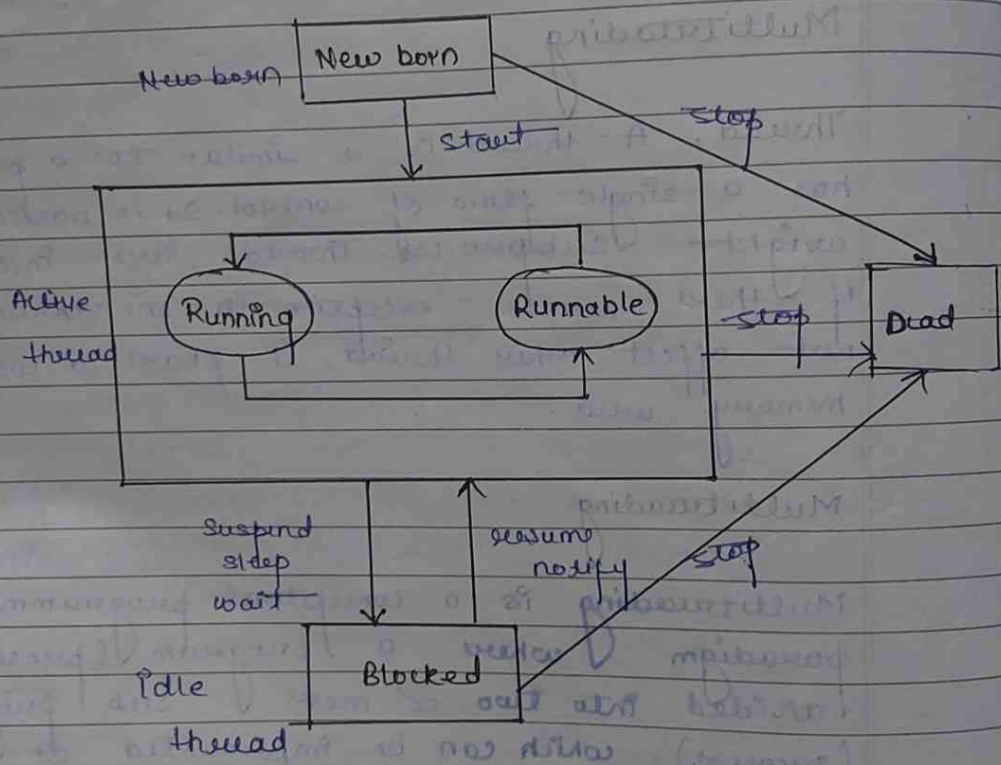 New born
New born
start
stop
Active
thread
Running
Runnable
stop
Dead
suspend
sleep
wait
resume
notify
stop
idle
thread
Blocked